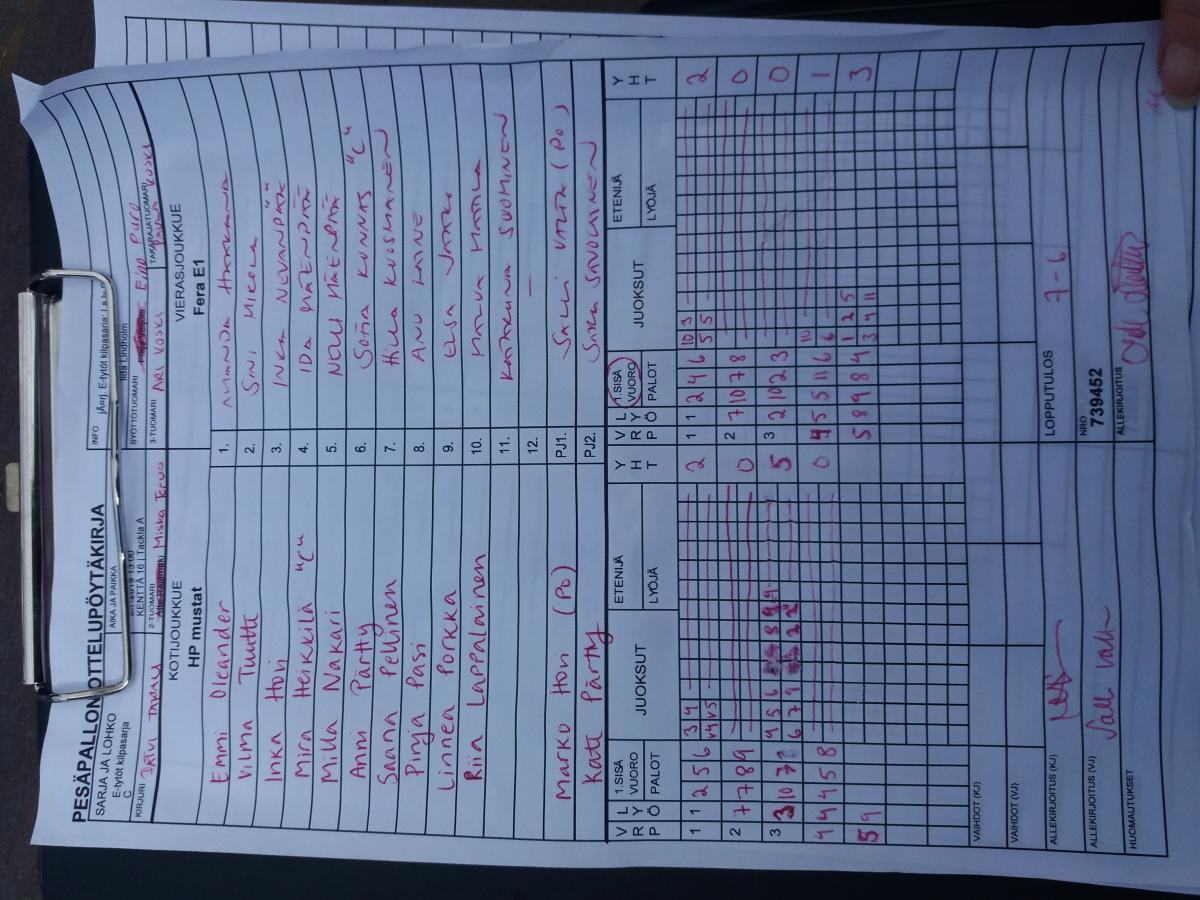 PESÄPALLON OTTELUPÖYTÄKIRJA
SARJA JA LOHKO
E-tytöt kilpasarja
C
AIKA JA PAIKKA
KENTTÄ 16 | Tackla A
INFO
E-tytöt kilpasarja:
KIRJURI
2-TUOMARI
Miska
SYÖTTÖTUOMARI
Iida Lindholm
3-TUOMARI
ARI KOSKI
TAKARAJATUOMARI
KOTIJOUKKUE
HP mustat
VIERASJOUKKUE
Fera E1
Emmi Oleander 1.
Vilma Tuutti 2. SINI MIKOLA
Inka Hori 3. INKA NEVANPÄÄ
Mira Heikkilä "C" 4. IDA MÄENPÄÄ
Milla Nakari 5. NELLI MÄENPÄÄ
Anni Pärtty 6. SOFIA KUNNAS "C"
Saana Peltonen 7. HILLA KUOSMANEN
Pinja Pasi 8. ANU LAINE
Linnea Porkka 9. ELSA
Riia Lappalainen 10.
11. KATARIINA SUOMINEN
12. –
Marko Hori (PO) PJ1. SALLI VALTA (PO)
Kati Pärtty PJ2. SAKA SAVOLAINEN
V R P L Y Ö 1.SISÄ VUORO PALOT JUOKSUT ETENIJÄ LYÖJÄ Y H T V R P L Y Ö 1.SISÄ VUORO PALOT JUOKSUT ETENIJÄ LYÖJÄ Y H T
1 1 2 5 6 3 4 2 1 1 2 4 6 10 3 2
V4 V5 5 5
2 7 7 8 9 0 2 7 10 7 8 0
3 3 10 7 4 5 6 5 3 2 10 2 3 0
6 7 9
4 4 4 5 8 0 4 5 5 11 6 10 1
6
5 9 5 8 9 8 4 1 2 5 3
3 4 11
VAIHDOT (KJ)
VAIHDOT (VJ)
ALLEKIRJOITUS (KJ)
LOPPUTULOS 7-6
ALLEKIRJOITUS (VJ)
NRO
739452
HUOMAUTUKSET
ALLEKIRJOITUS